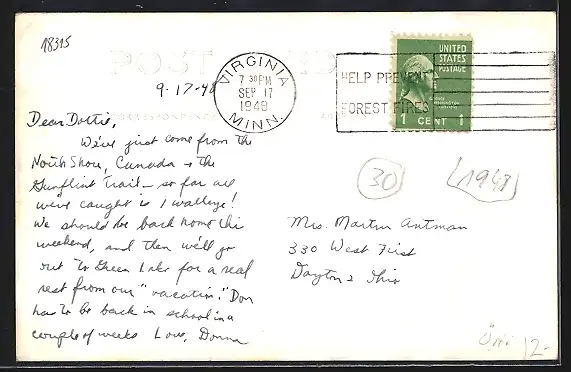 18315
POST
9-17-48
VIRGINIA
7 30 PM
SEP 17
1948
MINN.
HELP PREVENT
FOREST FIRES
UNITED
STATES
POSTAGE
1 CENT 1
Dear Dottie,
We've just come from the
North Shore, Canada & the
Gunflint Trail – so far all
we've caught is 1 walleye!
We should be back home this
weekend, and then we'll go
out to Green Lake for a real
rest from our "vacation." Don
has to be back in school in a
couple of weeks Love, Donna
30
(1948)
Mrs. Martin Antman
330 West First
Dayton 2 Ohio
12-